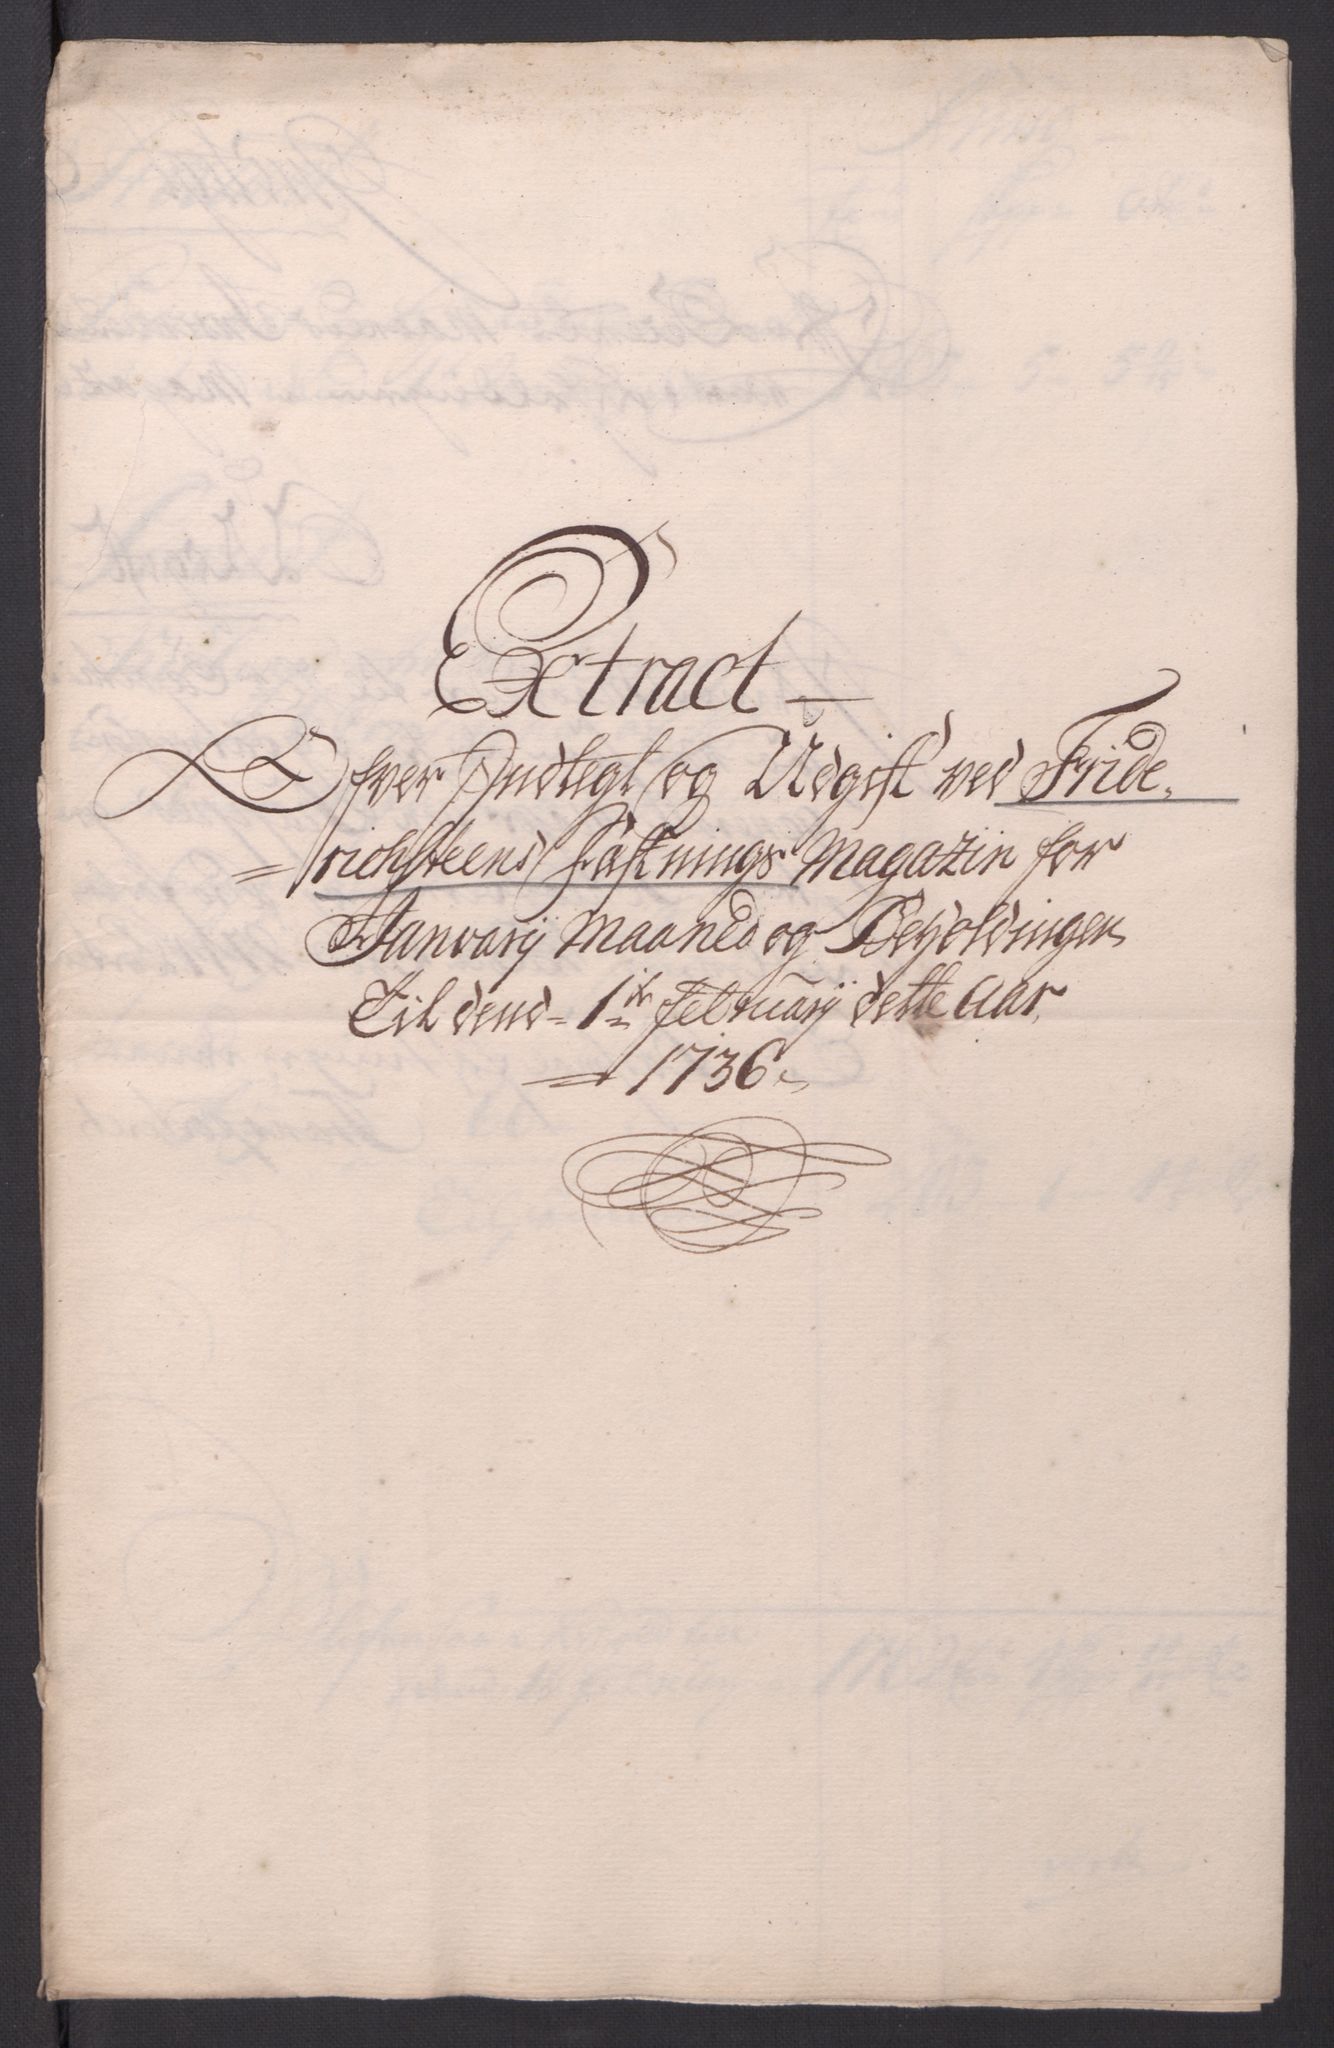 Extract
Ofver Indtegt og Udgift ved Fride,
= richsteens Fästnings Magazin for
Januarij Maaned og Beholdingen
Til dend 1te Februarij dette Aar
1736